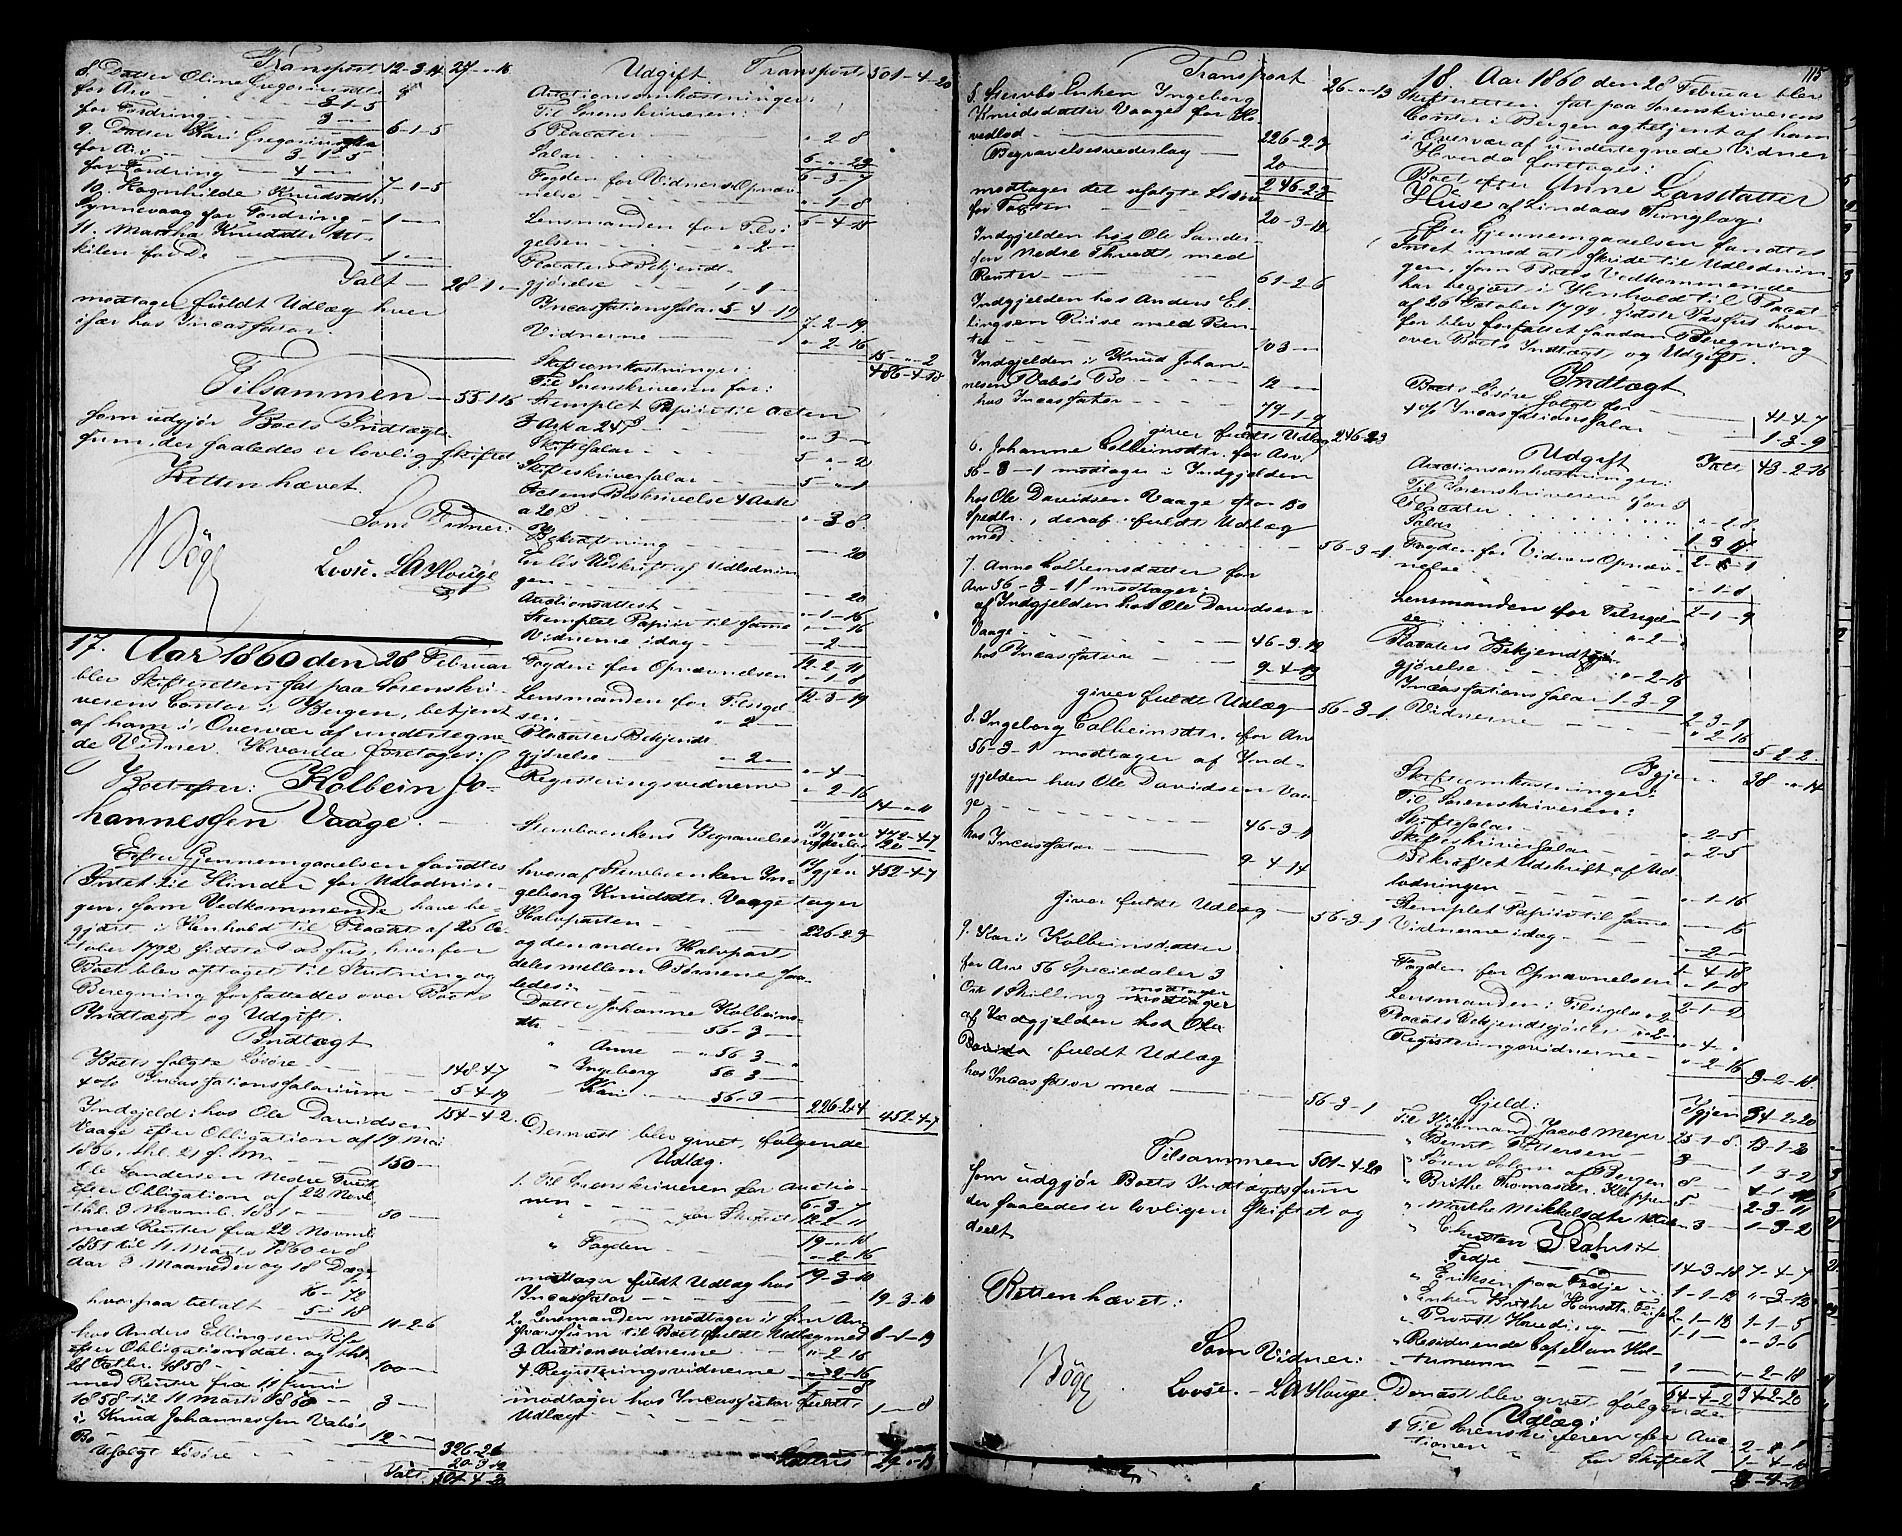 Transport 12-3-14 27-"-16
8. Datter Oline Gregoriusdtr
for Arv 3-1-5
for Fordring 3-"-" 6-1-5
9. Datter Kari Gregoriusdtr
for Arv 3-1-5
for Fordring 4-"- 7-1-5
10. Ragnhilde Knudsdtr
Synnevaag for Fordring 1-"-
11. Martha Knudsdtr
for Do 1-"-
Salt 28-1-"
modtager fuldt Udlæg hver
især hos Incassator.
Tilsammen 55-1-16
som udgjør Boets Indtægts
sum, der saaledes er lovlig skiftet
Retten hævet.
Som Vidner:
Loose. LAHouge
17. Aar 1860 den 28 Februar
blev Skifteretten sat paa Sorenskri-
verens Contor i Bergen, betjent
af ham i Overvær af undertegne-
de Vidner. Hvorda foretoges:
Boet efter: Kolbein Jo-
hannessen Vaage.
Efter Gjennemgaaelsen fandtes
Intet til Hinder for Udlodnin-
gen, som Vedkommende have be-
gjært i Henhold til Placat af 26 Oc-
tober 1792 sidste Passus, hvorfor
Boet blev optaget til Slutning og
Beregning forfattedes over Boets
Indtægt og Udgift.
Indtægt
Boets solgte Løsøre 148-4-7
4 o/o Incassationssalarium 5-4-19
154-4-2
Indgjeld: hos Ole Davidsen
Vaage efter Obligation af 19 Mai
1856, thl. 21 s. M. 150-
Ole Sandersen Nedre
efter Obligation af 22 Novb.
thl. 3 Novemb. 1851 50-
med Renter fra 22 Novemb.
1851 til 11 Marts 1860 er 8
Aar 3 Maaneder og 18 Dage
16-"-73
hvorpaa betalt 5-"-18
11-2-6
hos Anders Ellingsen
efter Obligation dat. og thl.
21 Octbr. 1858 100-
med Renter fra 11 Juni
1858 til 11 Marts 1860 3-
i Knud Johannessen Vabøs
Bo 12-
326-2-6
Usolgt Løsøre 20-3-12
Salt. 501-4-20
Udgift Transport 501-4-20
Auctionsomkostninger:
Til Sorenskriveren:
6 Placater "-2-8
Salar 6-"-23
6-3-7
Fogden for Vidners Opnæv-
nelse "-1-8
6-4-15
Lensmanden for Tilsi-
gelsen "-2-"
Placaters Bekjendt-
gjørelse 1-1-"
Incassationssalar 5-4-19
7-2-19
Vidnerne "-2-16
15-"-2
486-4-18
Skifteomkostninger:
Til Sorenskriveren for:
Stemplet Papiir til Acten
3 Ark a 24 s "-3-"
Skiftesalar 5-"-2
Skifteskriversalar 5-"-1
Actens Beskrivelse 4 Ark
a 20 s "-3-8
Bekræftning -20
for lis Udskrift af Udlodnin-
gen -20
Auctionsattest "-1-16
Stemplet Papiir til samme -"-16
Vidnerne idag -2-
12-2-11
Fogden for Opnævnelsen "-1-8
12-3-19
Lensmanden for Tilsigel-
sen "-2-
Placaters Bekjendt-
gjørelse "-2-
"-4-
Registeringsvidnerne "-2-16
14-"-11
Igjen 472-4-7
Stervboenkens Begravelsesvederlag 20
Igjen 452-4-7
hvoraf Stervboenken In-
geborg Knudsdtr. Vaage tager
Halvparten 226-2-3
og den anden Halvpart
deles mellem Børnene saa-
ledes:
Datter Johanne Kolbeins-
dtr. 56-3-
" Anne 56-3-
" Ingeborg 56-3-
" Kari 56-3-
226-2-4
452-4-7
Dernæst blev givet følgende
Udlæg.
1. Til Sorenskriveren for Auctio-
nen 6-3-7
" for Skiftet 12-2-11
19-"-18
" Fogden "-2-16
19-3-10
modtager fuldt Udlæg hos
Incassator 19-3-10
2. Lensmanden modtager i sin An-
svarssum til Boet fuldt Udlæg med 8-1-19
3 Auctionsvidnerne "-2-16
4 Registeringsvidnerne "-2-16
1-"-8
modtager hos Incassator fuldt
Udlæg 1-"-8
Lateris 29-"-13
115
Transport 26-"-13
5. Stervbo Enken Ingeborg
Knudsdatter Vaage for Ho-
vedlod 226-2-3
Begravelsesvederlag 20
246-2-3
modtager det usolgte Løsøre
for Taxten 20-3-12
Indgjelden hos Ole Sander-
sen Nedre med
Renter 61-2-6
Indgjelden hos Anders El-
lingsen Riise med Ren-
ter 103-
Indgjelden i Knud Johan-
nesen Vabøs Bo 12-
hos Incassator 79-1-9
giver fuldt Udlæg 246-2-3
6. Johanne Colbeinsdtr. for Arv
56-3-1 modtager i Indgjelden
hos Ole Davidsen Vaage
Spedlr., deraf fuldt Udlæg
med 56-3-1
7. Anne Colbeinsdatter for
Arv 56-3-1 modtager
af Indgjelden hos Ole Davidsen
Vaage 46-3-12
hos Incassator 9-4-13
giver fuldt Udlæg 56-3-1
8. Ingeborg Colbeinsdtr. for Arv
56-3-1 modtager af Ind-
gjelden hos Ole Davidsen Vaa-
ge 46-3-11
hos Incassator 9-4-14
giver fuldt Udlæg 56-3-1
9. Kari Kolbeinsdatter
for Arv 56 Speciedaler 3
Ort 1 Skilling modtager
fuldt Udlæg
hos Incassator med 56-3-1
Tilsammen 501-4-20
som udgjør Boets Indtægtssum
der saaledes er lovligen skiftet og
deelt
Retten hævet:
Som Vidner:
Loose. LAHouge.
18. Aar 1860 den 28 Februar blev
Skifteretten sat paa Sorenskriverens
Contor i Bergen og betjent af ham
i Overvær af undertegnede Vidner
Hvorda foretoges:
Boet efter Anne Larsdatter
Huse af Lindaas Tinglag:
Efter Gjennemgaaelsen fandtes
Intet imod at skride til Udlodnin-
gen, som Boets Vedkommende
har begjært i Henhold til Placat
af 26 October 1792, sidste Passus, hvor-
for blev forfattet saadan Beregning
over Boets Indtægt og Udgift.
Indtægt
Boets Løsøre solgt for 41-4-7
4 o/o Incassationssalar 1-3-9
Udgift Salt 43-2-16
Auctionsomkostninger:
Til Sorenskriveren for 5
Placater "-1-8
Salar 1-3-17
2-"-1
Fogden for Vidners Opnæv-
nelse "-1-8
2-1-9
Lensmanden for Tilsigel-
se "-2-"
Placaters Bekjendt-
gjørelse "-2-16
Incassationssalar 1-3-9
2-3-1
Vidnerne "-2-16
5-2-2
Igjen 38-"-14
Skifteomkostninger:
Til Sorenskriveren:
Skiftesalar "-2-5
Skifteskriversalar "-2-5
Bekræftet Udskrift af Ud-
lodningen "-1-16
Stemplet Papiir til samme -16
Vidnerne idag "-2-
1-4-18
Fogden for Opnævnelsen "-1-8
2-1-2
Lensmanden i Tilsigelse "-2
Placats Bekjendtgjørelse "-2-
"-4-"
Registringsvidnerne "-2-16
3-2-18
Gjeld: Igjen 34-2-20
Til Kjøbmand Jacob Meyer 25-1-8 13-1-3
" Bernt Pettersen 3-
" Søren Salom af Bergen 8-
" Brithe Thomasdtr. Kloppen 5
" Marthe Mikkelsdtr 3- 1-3-2
" Christen
Fedje 14-3-18 7-4-7
" Eriksen paa Fedje 1-1-12 "-3-12
" Enken Brithe Hansdtr. 2-1-18 1-1-5
" Provst Harding 1-1- "-3-6
" Residerende Capellan
"-2-18
64-4-2 34-2-20
Dernæst blev givet følgende
Udlæg:
1 Til Sorenskriveren for Auc-
tionen 2-"-1
" for Skiftet 1-4-18
3-4-19